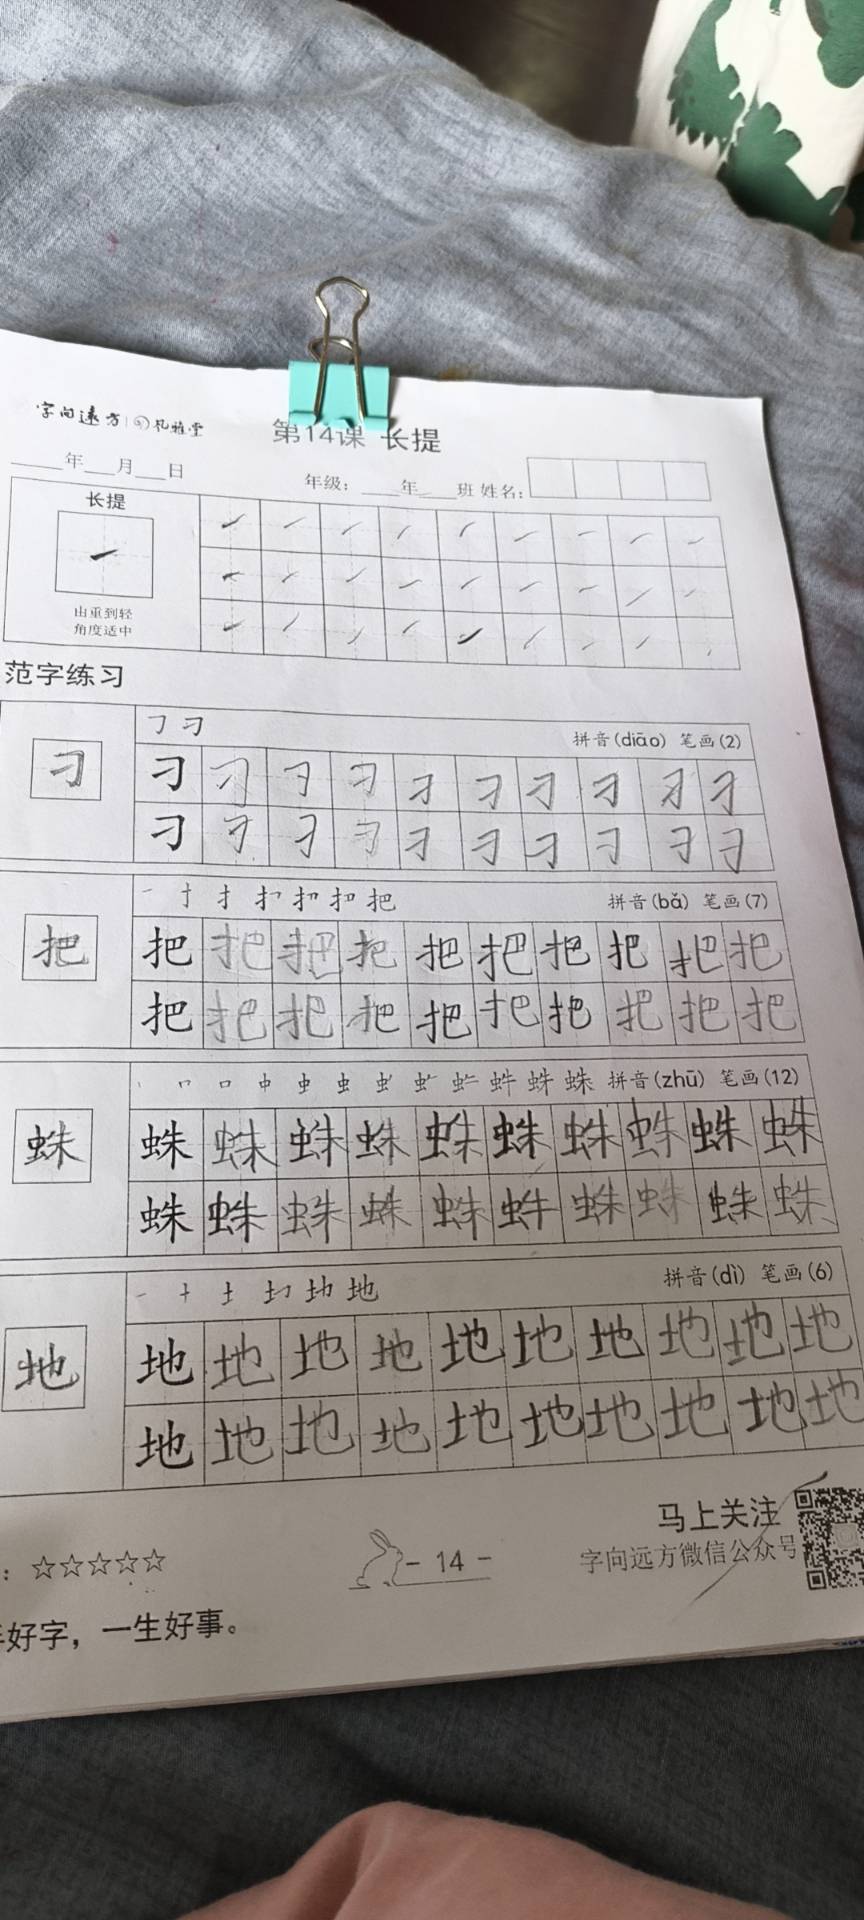 字向远方 礼雅堂
第14课 长提
年 月 日 年级: 年 班 姓名:
长提
由重到轻
角度适中
范字练习
刁 拼音(diāo) 笔画(2)
刁 刁 刁 刁 刁 刁 刁 刁 刁 刁 刁
刁 刁 刁 刁 刁 刁 刁 刁 刁 刁
扌 把 拼音(bǎ) 笔画(7)
把 把 把 把 把 把 把 把 把 把 把
把 把 把 把 把 把 把 把 把 把
丶 口 中 虫 蛛 拼音(zhū) 笔画(12)
蛛 蛛 蛛 蛛 蛛 蛛 蛛 蛛 蛛 蛛 蛛
蛛 蛛 蛛 蛛 蛛 蛛 蛛 蛛 蛛 蛛
一 十 土 地 拼音(dì) 笔画(6)
地 地 地 地 地 地 地 地 地 地 地
地 地 地 地 地 地 地 地 地 地
马上关注
: ☆☆☆☆☆ - 14 - 字向远方微信公众号
好字，一生好事。